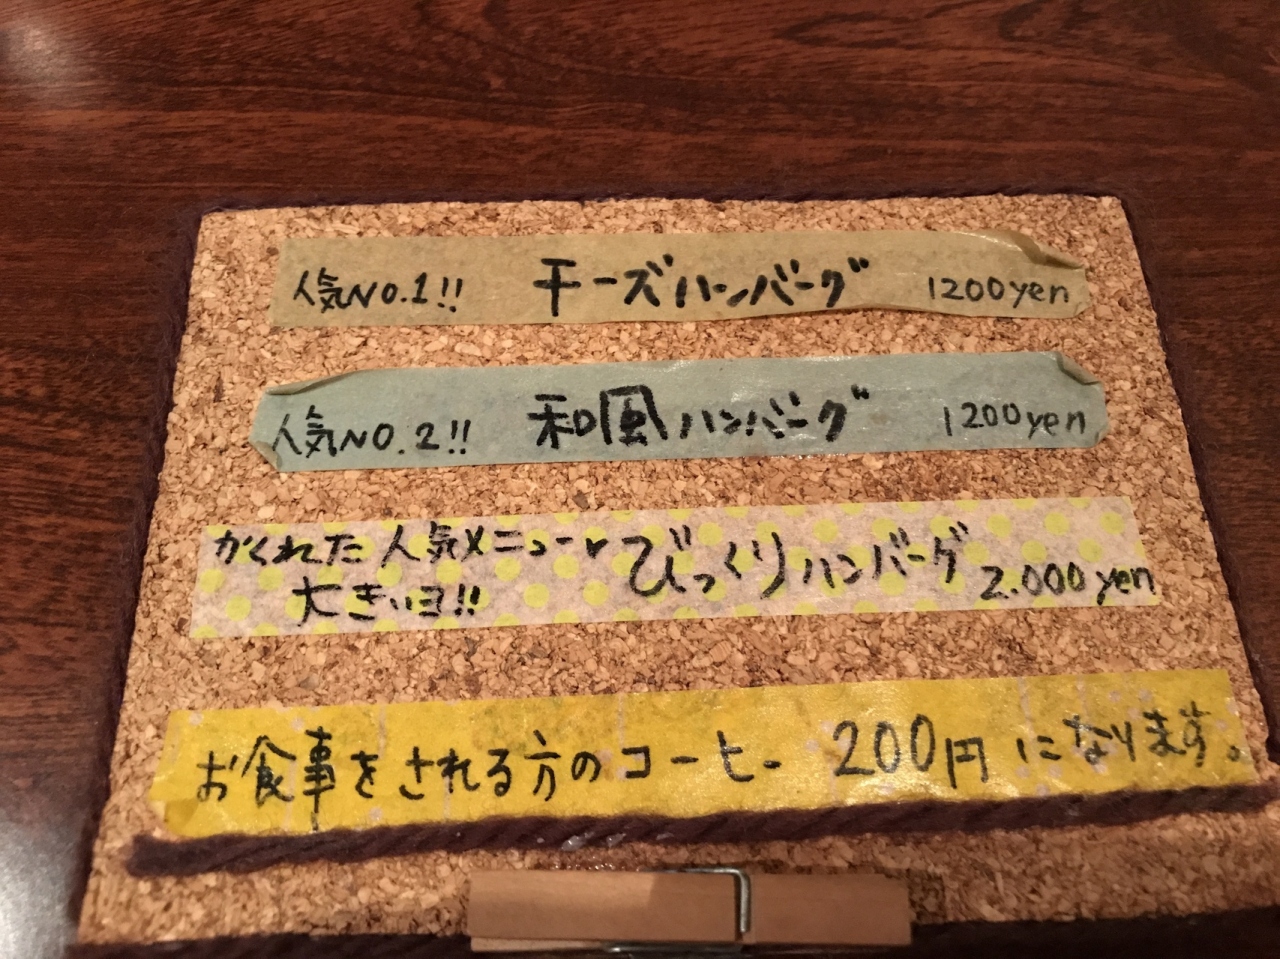 人気NO.1!! チーズハンバーグ 1200yen
人気NO.2!! 和風ハンバーグ 1200yen
かくれた人気メニュー♥ びっくりハンバーグ 2.000yen
大きいヨ!!
お食事をされる方のコーヒー 200円になります。